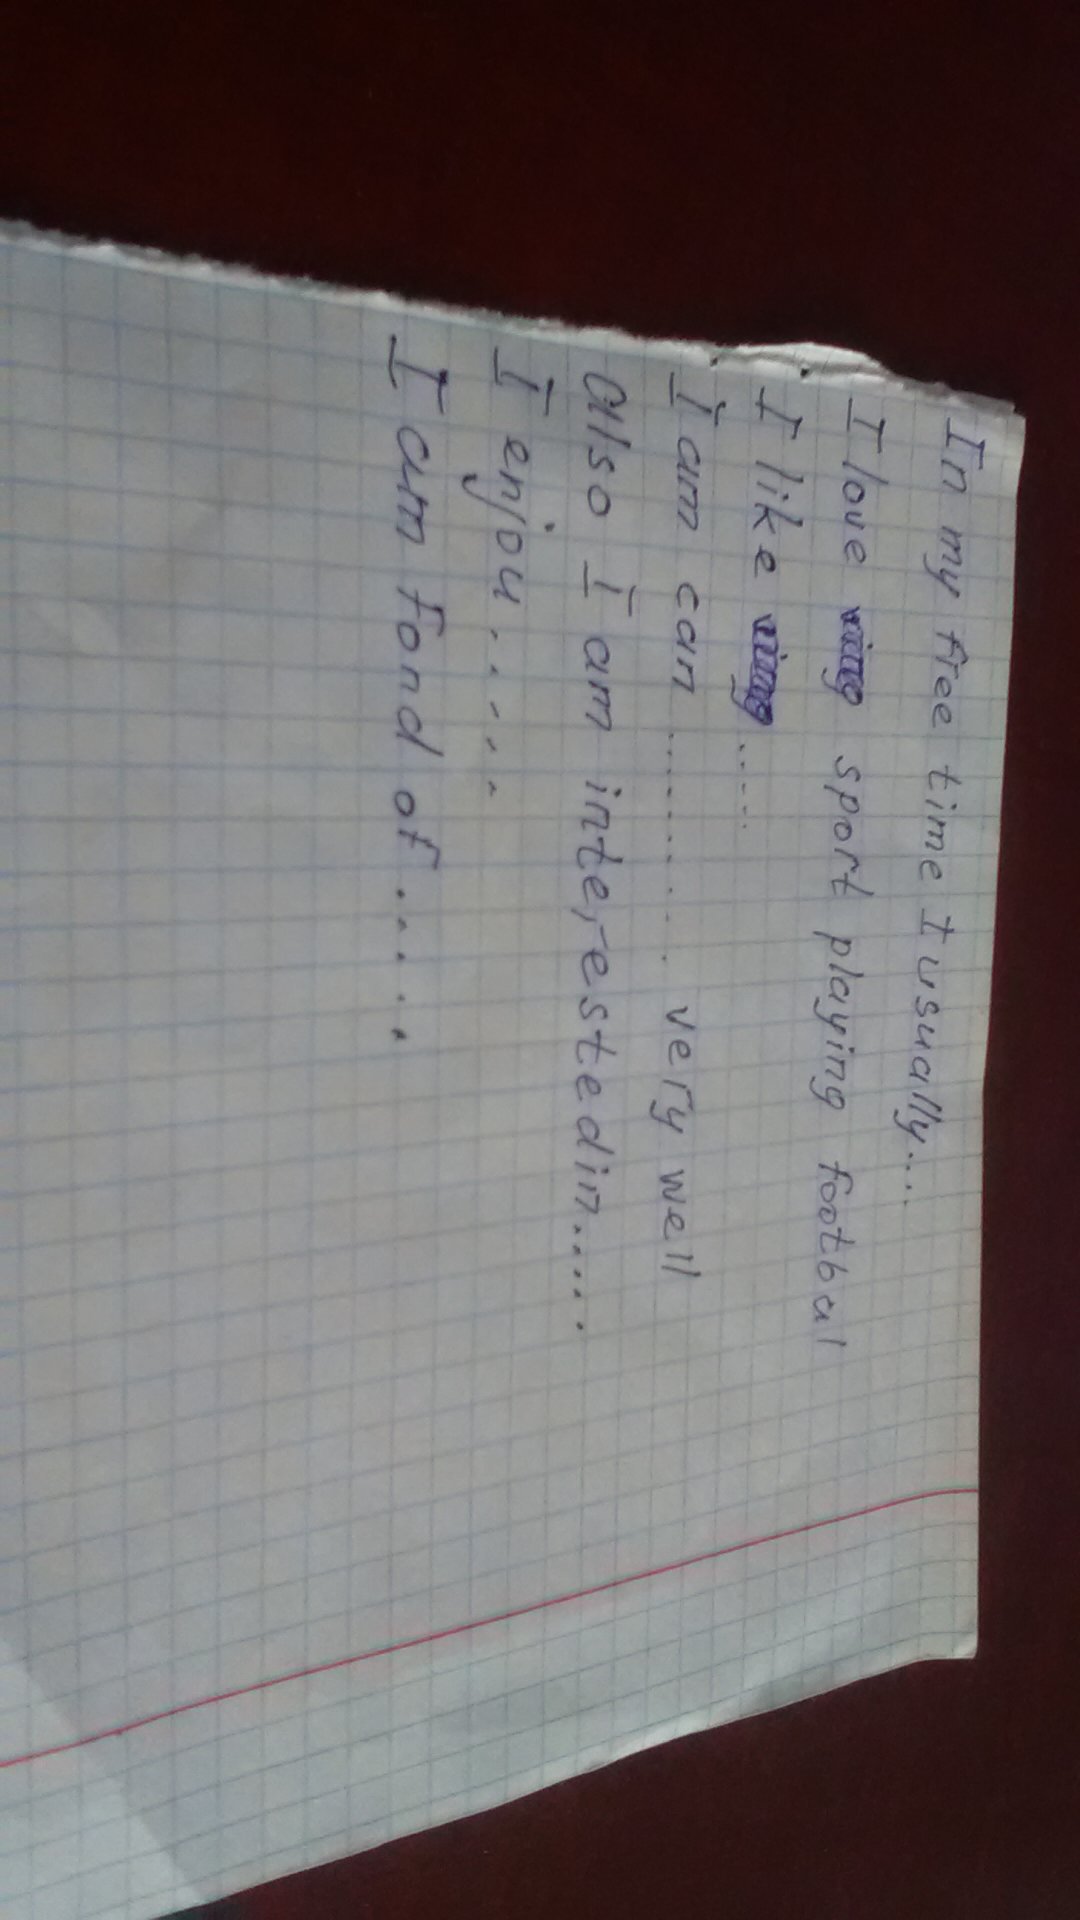 In my free time I usually....
I love sport playing footbal
I like .....
I am can .......... very well
Also I am interested in.....
I enjoy.....
I am fond of.....